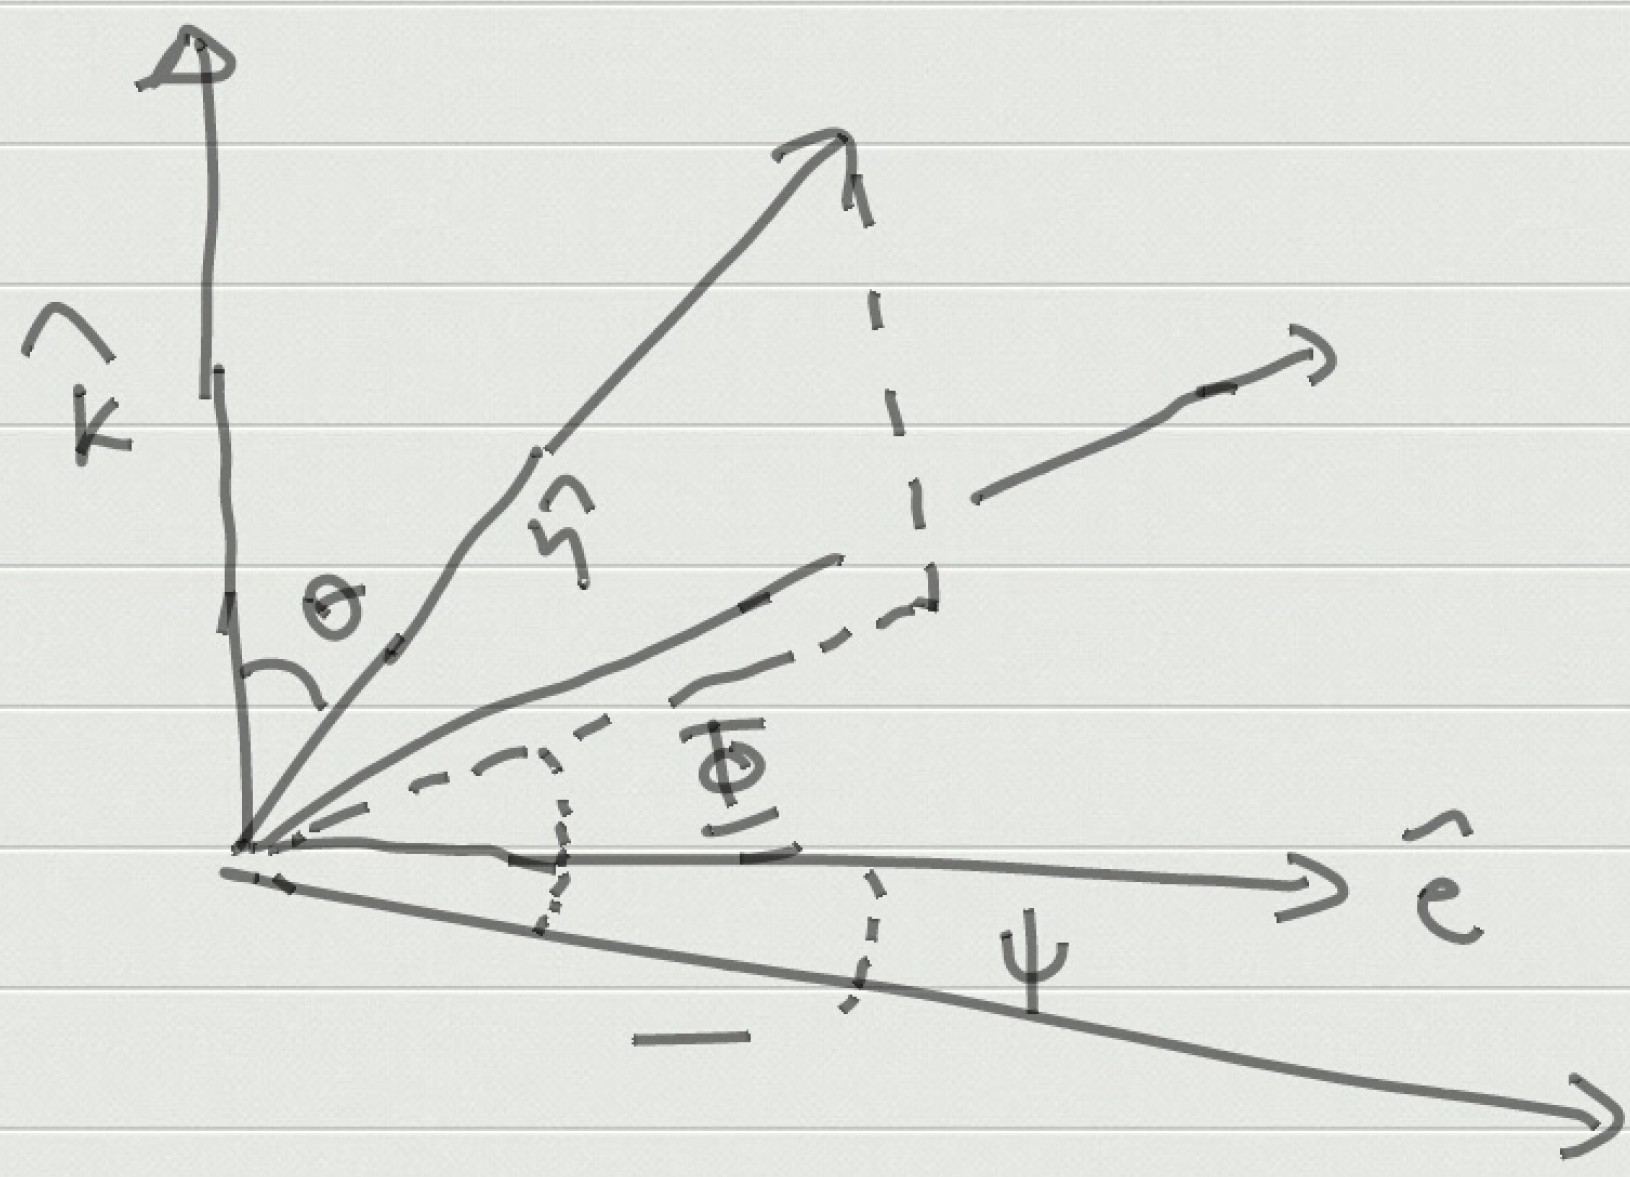 k̂
θ
η̂
Φ
ê
ψ